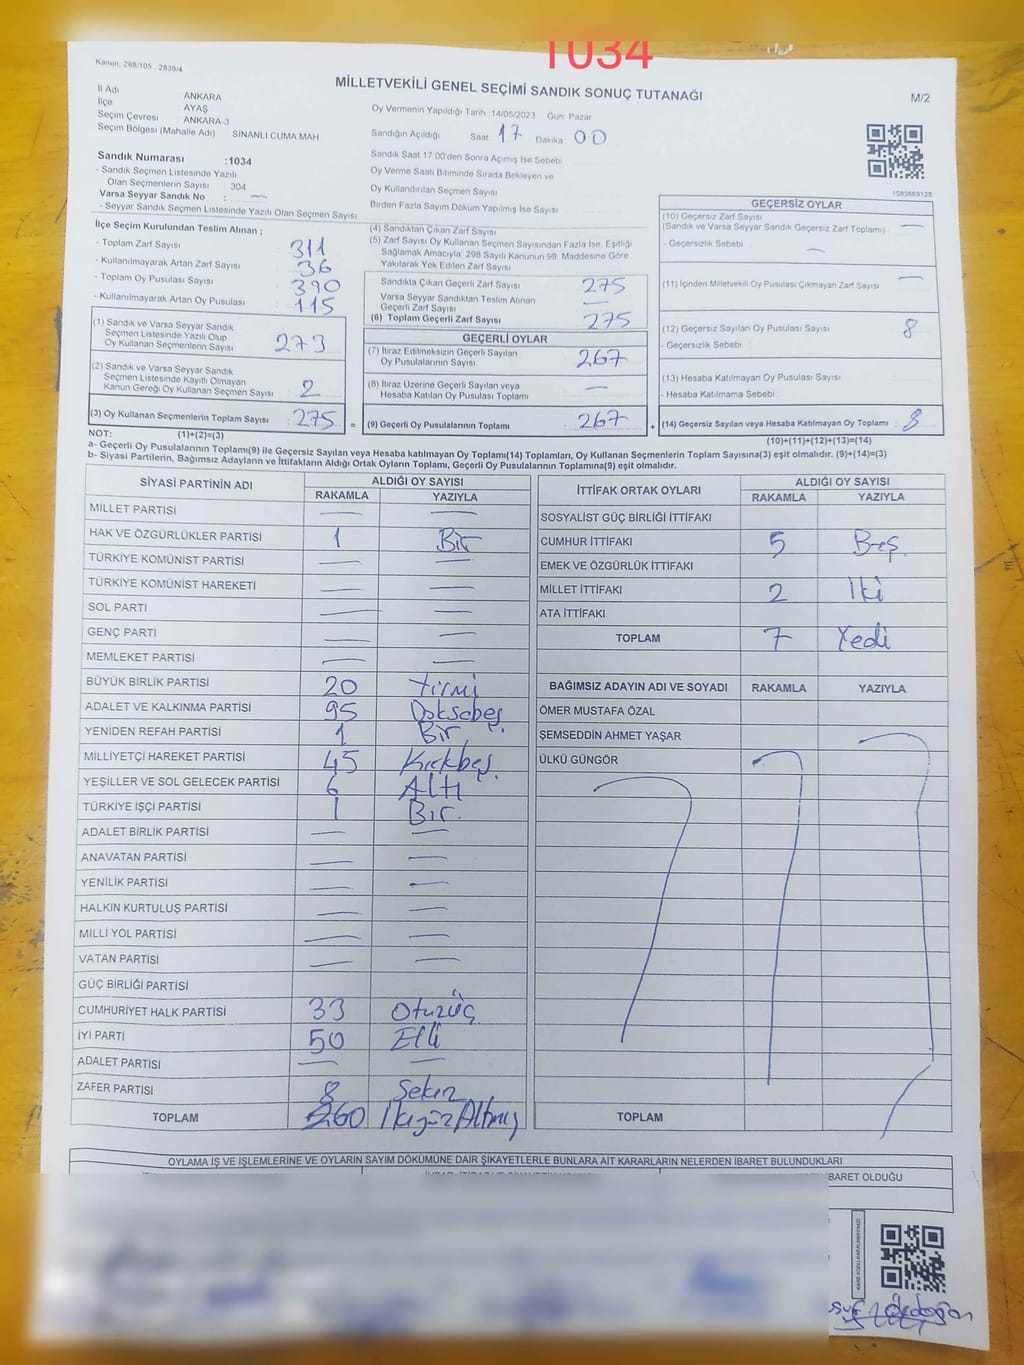 1034
Kanun: 298/105 , 2839/4
MİLLETVEKİLİ GENEL SEÇİMİ SANDIK SONUÇ TUTANAĞI
M/2
İl Adı ANKARA
İlçe AYAŞ
Seçim Çevresi ANKARA-3
Seçim Bölgesi (Mahalle Adı) SİNANLI CUMA MAH
Oy Vermenin Yapıldığı Tarih :14/05/2023 Gün: Pazar
Sandığın Açıldığı Saat 17 Dakika 00
Sandık Saat 17:00'den Sonra Açımış İse Sebebi
Oy Verme Saati Bitiminde Sırada Bekleyen ve
Oy Kullandırılan Seçmen Sayısı
Birden Fazla Sayım Döküm Yapılmış İse Sayısı
Sandık Numarası :1034
- Sandık Seçmen Listesinde Yazılı
Olan Seçmenlerin Sayısı : 304
Varsa Seyyar Sandık No : —
- Seyyar Sandık Seçmen Listesinde Yazılı Olan Seçmen Sayısı
1083669128
İlçe Seçim Kurulundan Teslim Alınan ;
- Toplam Zarf Sayısı 311
- Kullanılmayarak Artan Zarf Sayısı 36
- Toplam Oy Pusulası Sayısı 390
- Kullanılmayarak Artan Oy Pusulası 115
(1) Sandık ve Varsa Seyyar Sandık
Seçmen Listesinde Yazılı Olup
Oy Kullanan Seçmenlerin Sayısı 273
(2) Sandık ve Varsa Seyyar Sandık
Seçmen Listesinde Kayıtlı Olmayan
Kanun Gereği Oy Kullanan Seçmen Sayısı 2
(3) Oy Kullanan Seçmenlerin Toplam Sayısı : 275 =
(4) Sandıktan Çıkan Zarf Sayısı
(5) Zarf Sayısı Oy Kullanan Seçmen Sayısından Fazla İse, Eşitliği
Sağlamak Amacıyla, 298 Sayılı Kanunun 98. Maddesine Göre
Yakılarak Yok Edilen Zarf Sayısı
Sandıkta Çıkan Geçerli Zarf Sayısı 275
Varsa Seyyar Sandıktan Teslim Alınan
Geçerli Zarf Sayısı —
(6) Toplam Geçerli Zarf Sayısı 275
GEÇERLİ OYLAR
(7) İtiraz Edilmeksizin Geçerli Sayılan
Oy Pusulalarının Sayısı 267
(8) İtiraz Üzerine Geçerli Sayılan veya
Hesaba Katılan Oy Pusulası Toplamı —
(9) Geçerli Oy Pusulalarının Toplamı : 267 +
GEÇERSİZ OYLAR
(10) Geçersiz Zarf Sayısı
(Sandık ve Varsa Seyyar Sandık Geçersiz Zarf Toplamı) —
- Geçersizlik Sebebi : —
(11) İçinden Milletvekili Oy Pusulası Çıkmayan Zarf Sayısı —
(12) Geçersiz Sayılan Oy Pusulası Sayısı 8
- Geçersizlik Sebebi :
(13) Hesaba Katılmayan Oy Pusulası Sayısı :
- Hesaba Katılmama Sebebi :
(14) Geçersiz Sayılan veya Hesaba Katılmayan Oy Toplamı : 8
NOT: (1)+(2)=(3) (10)+(11)+(12)+(13)=(14)
a- Geçerli Oy Pusulalarının Toplamı(9) ile Geçersiz Sayılan veya Hesaba katılmayan Oy Toplamı(14) Toplamları, Oy Kullanan Seçmenlerin Toplam Sayısına(3) eşit olmalıdır. (9)+(14)=(3)
b- Siyasi Partilerin, Bağımsız Adayların ve İttifakların Aldığı Ortak Oyların Toplamı, Geçerli Oy Pusulalarının Toplamına(9) eşit olmalıdır.
SİYASİ PARTİNİN ADI ALDIĞI OY SAYISI
RAKAMLA YAZIYLA
MİLLET PARTİSİ — —
HAK VE ÖZGÜRLÜKLER PARTİSİ 1 Bir
TÜRKİYE KOMÜNİST PARTİSİ — —
TÜRKİYE KOMÜNİST HAREKETİ — —
SOL PARTİ — —
GENÇ PARTİ — —
MEMLEKET PARTİSİ — —
BÜYÜK BİRLİK PARTİSİ 20 Yirmi
ADALET VE KALKINMA PARTİSİ 95 Doksabeş
YENİDEN REFAH PARTİSİ 1 Bir.
MİLLİYETÇİ HAREKET PARTİSİ 45 Kırkbeş.
YEŞİLLER VE SOL GELECEK PARTİSİ 6 Altı
TÜRKİYE İŞÇİ PARTİSİ 1 Bır.
ADALET BİRLİK PARTİSİ — —
ANAVATAN PARTİSİ — —
YENİLİK PARTİSİ — —
HALKIN KURTULUŞ PARTİSİ — —
MİLLİ YOL PARTİSİ — —
VATAN PARTİSİ — —
GÜÇ BİRLİĞİ PARTİSİ
CUMHURİYET HALK PARTİSİ 33 Otuzüç
İYİ PARTİ 50 Elli
ADALET PARTİSİ — —
ZAFER PARTİSİ 8 Sekız
TOPLAM 260 İkiyüzAltmış
İTTİFAK ORTAK OYLARI ALDIĞI OY SAYISI
RAKAMLA YAZIYLA
SOSYALİST GÜÇ BİRLİĞİ İTTİFAKI
CUMHUR İTTİFAKI 5 Beş.
EMEK VE ÖZGÜRLÜK İTTİFAKI
MİLLET İTTİFAKI 2 İki
ATA İTTİFAKI
TOPLAM 7 Yedi
BAĞIMSIZ ADAYIN ADI VE SOYADI RAKAMLA YAZIYLA
ÖMER MUSTAFA ÖZAL
ŞEMSEDDİN AHMET YAŞAR
ÜLKÜ GÜNGÖR
TOPLAM
OYLAMA İŞ VE İŞLEMLERİNE VE OYLARIN SAYIM DÖKÜMÜNE DAİR ŞİKAYETLERLE BUNLARA AİT KARARLARIN NELERDEN İBARET BULUNDUKLARI
İBARET OLDUĞU